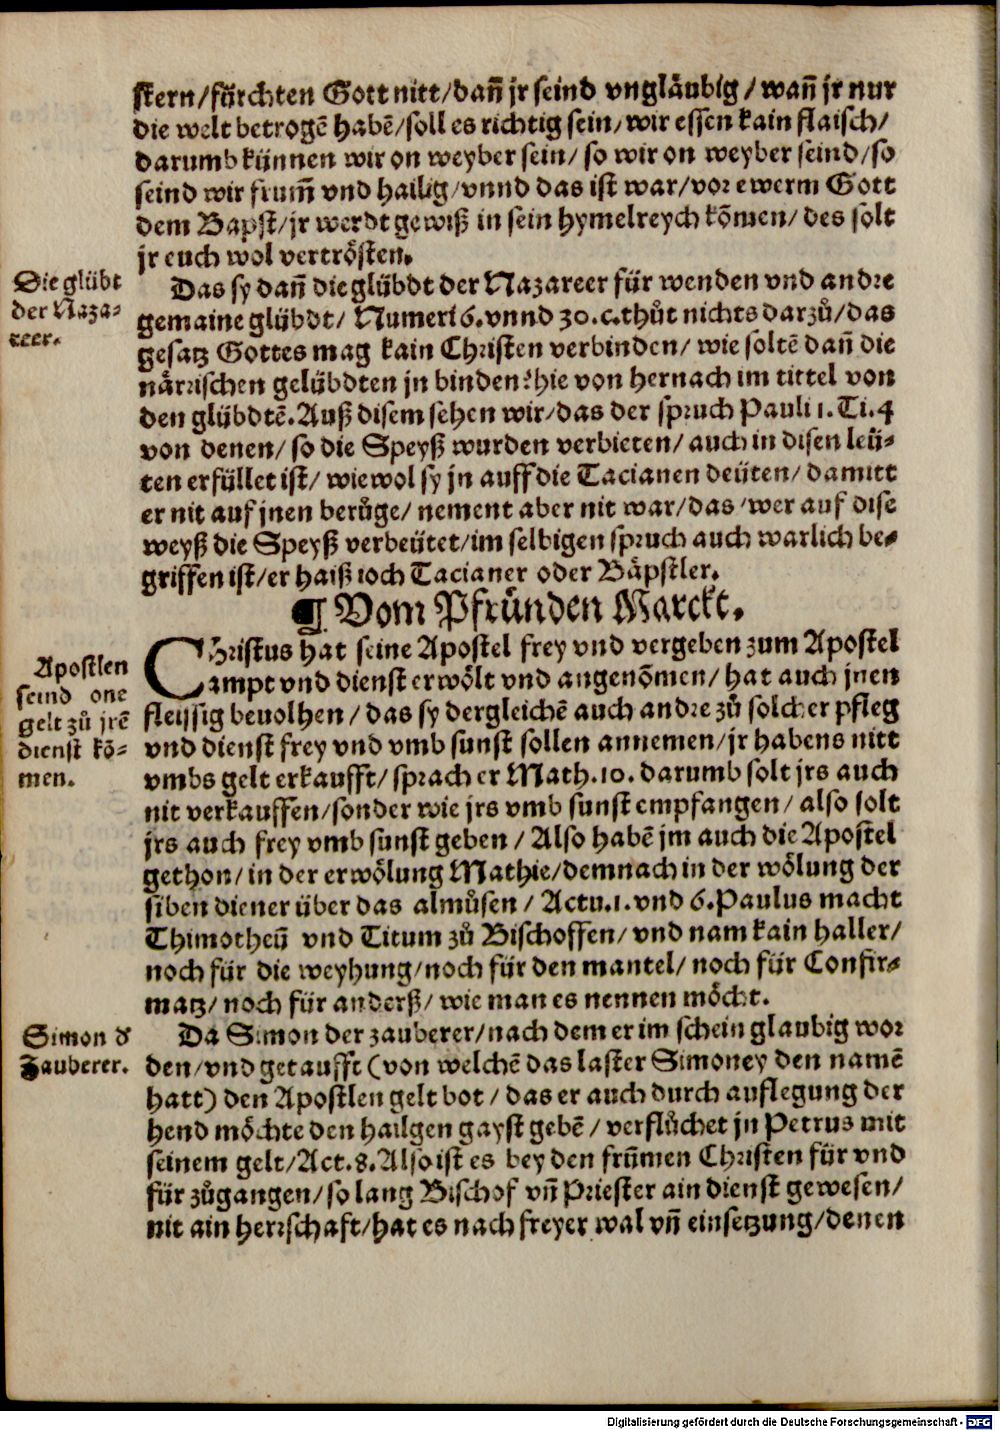 stern/fürchten Gott nitt/dañ jr seind vngläubig/wañ jr nur
die welt betrogē habē/soll es richtig sein/wir essen kain flaisch/
darumb künnen wir on weyber sein/ so wir on weyber seind/so
seind wir frum̄ vnd hailig/vnnd das ist war/vor ewerm Gott
dem Bapst/jr werdt gewiß in sein hymelreych kōmen/ des solt
jr euch wol vertrösten.
Die glübt
der Naza-
reer.
Das sy dañ die glübdt der Nazareer für wenden vnd andre
gemaine glübdt/ Numeri 6.vnnd 30.c.thůt nichts darzů/das
gesatz Gottes mag kain Christen verbinden/ wie soltē dañ die
närrischen gelübdten jn binden? hie von hernach im tittel von
den glübdtē.Auß disem sehen wir/das der spruch Pauli 1.Ti.4
von denen/ so die Speyß wurden verbieten/ auch in disen leü-
ten erfüllet ist/ wiewol sy jn auff die Tacianen deüten/ damitt
er nit auf jnen berůge/ nement aber nit war/das/wer auf dise
weyß die Speyß verbeütet/im selbigen spruch auch warlich be-
griffen ist/er haiß ioch Tacianer oder Bäpstler.
¶ Vom Pfründen Marckt.
Apostlen
seind one
gelt zů jrē
dienst kō-
men.
Christus hat seine Apostel frey vnd vergeben zum Apostel
ampt vnd dienst erwölt vnd angenōmen/ hat auch jnen
fleijsig beuolhen/ das sy dergleichē auch andre zů solcher pfleg
vnd dienst frey vnd vmb sunst sollen annemen/jr habens nitt
vmbs gelt erkaufft/sprach er Math.10. darumb solt jrs auch
nit verkauffen/sonder wie jrs vmb sunst empfangen/ also solt
jrs auch frey vmb sunst geben/ Also habē jm auch die Apostel
gethon/in der erwölung Mathie/demnach in der wölung der
siben diener über das almůsen/ Actu.1.vnd 6.Paulus macht
Thimotheū vnd Titum zů Bischoffen/vnd nam kain haller/
noch für die weyhung/noch für den mantel/ noch für Confir-
matz/ noch für anderß/ wie man es nennen möcht.
Simon ď
Zauberer.
Da Simon der zauberer/nach dem er im schein glaubig wor
den/vnd getaufft (von welchē das laster Simoney den namē
hatt) den Apostlen gelt bot/ das er auch durch auflegung der
hend möchte den hailgen gayst gebē/ verflůchet jn Petrus mit
seinem gelt/Act.8.Also ist es bey den frūmen Christen für vnd
für zůgangen/so lang Bischof vñ Priester ain dienst gewesen/
nit ain herrschaft/hat es nach freyer wal vñ einsetzung/denen
Digitalisierung gefördert durch die Deutsche Forschungsgemeinschaft - DFG